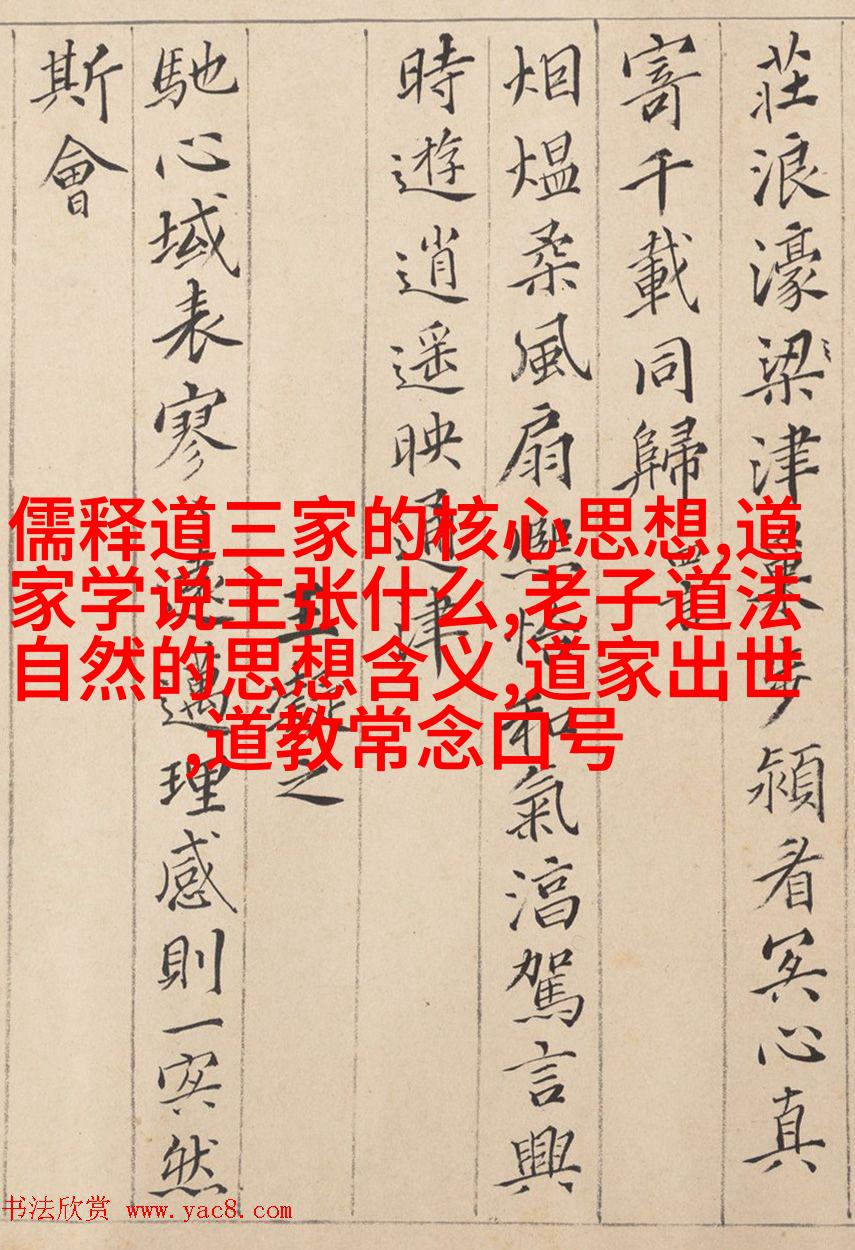 莊浪濠梁津巢步潁冥心真
寄千載同歸
烟煴柔風扇熙怡和氣淳駕言興
時遊逍遥映通津
王凝之
馳心域表寥遠邁理感則一冥然
斯會
儒释道三家的核心思想,道
家学说主张什么,老子道法
自然的思想含义,道家出世
,道教常念口号
书法欣赏 www.yac8.com